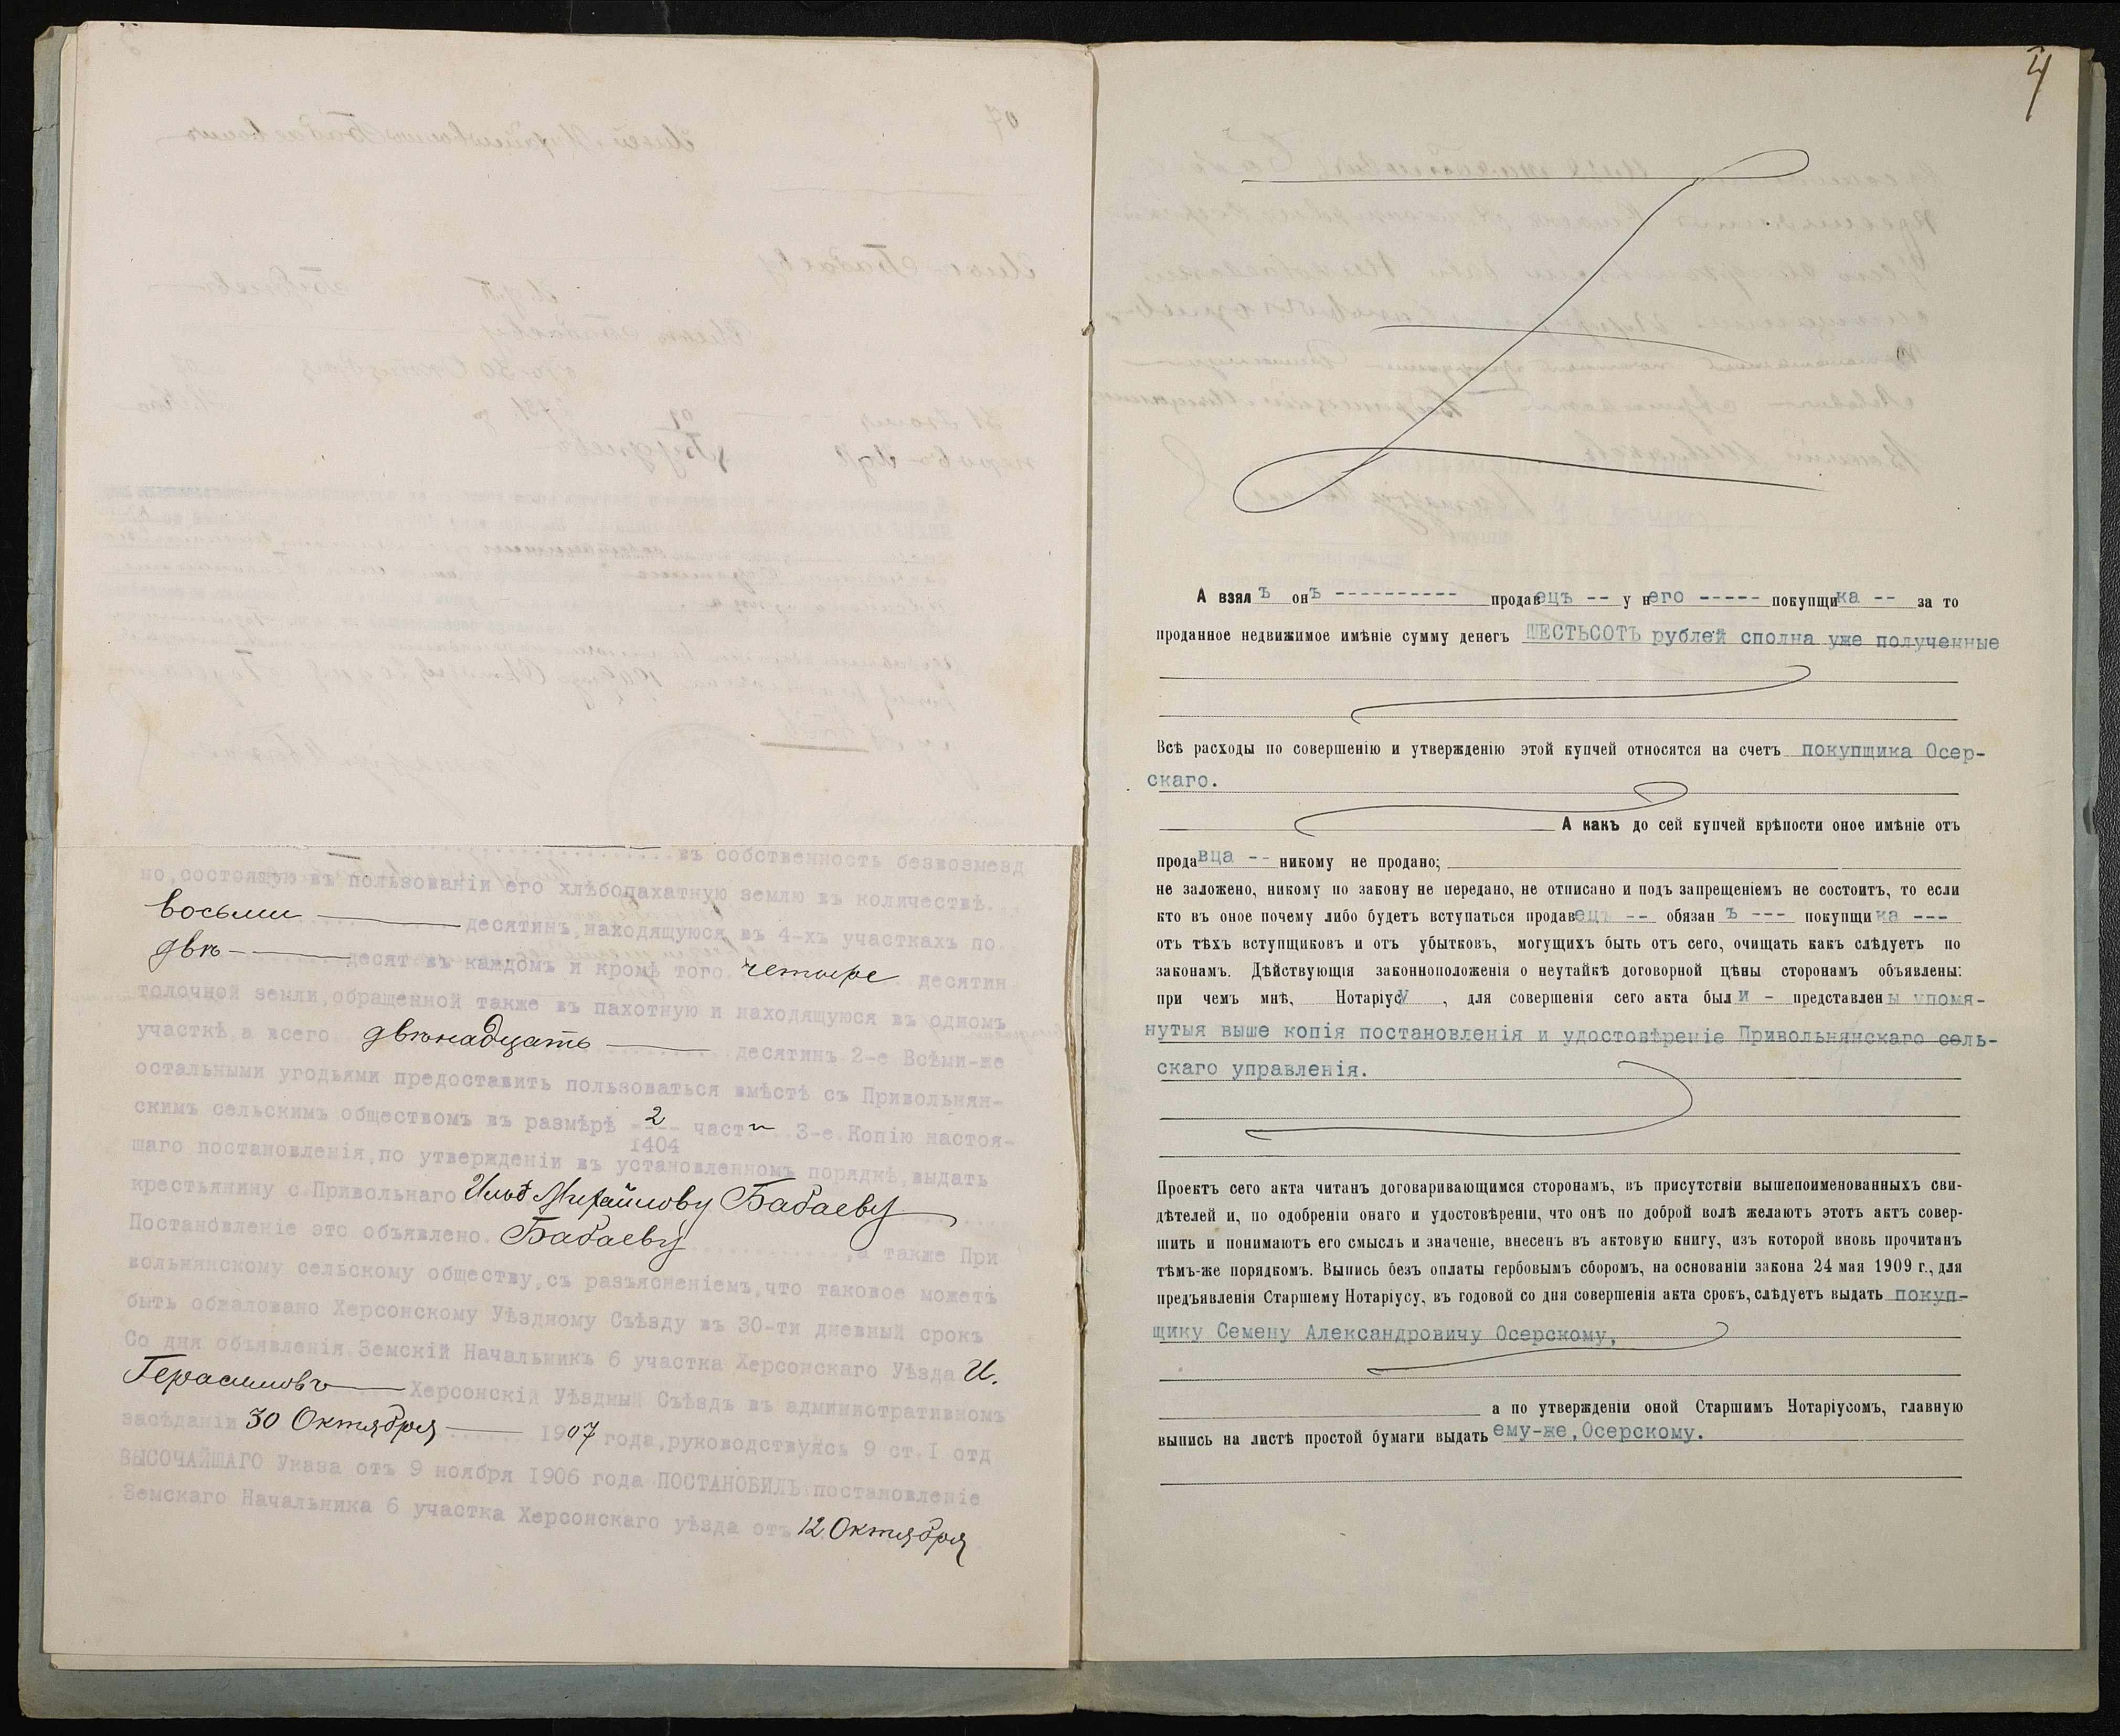 въ собственность безвозмезд
но, состоящую въ пользованіи его хлѣбопахатную землю въ количествѣ...
восьми десятинъ, находящуюся въ 4-хъ участкахъ по.
двѣ- десят въ каждомъ и кромѣ того. четыре десятин
толочной земли, обращенной также въ пахотную и находящуюся въ одномъ
участкѣ а всего двѣнадцать десятинъ 2-е Всѣми-же
остальными угодьями предоставить пользоваться вмѣстѣ съ Привольнян-
скимъ сельскимъ обществомъ въ размѣрѣ 2/1404 части 3-е Копію настоя-
щаго постановленія, по утвержденіи въ установленномъ порядкѣ, выдать
крестьянину с. Привольнаго Ильѣ Михайлову Бабаеву
Постановленіе это объявлено. Бабаеву, а также При
вольнянскому сельскому обществу, съ разъясненіемъ, что таковое можетъ
быть обжаловано Херсонскому Уѣздному Съѣзду въ 30-ти дневный срокъ
Со дня объявленія. Земскій Начальникъ 6 участка Херсонскаго Уѣзда И.
Герасимовъ Херсонскій Уѣздный Съѣздъ въ административномъ
засѣданіи 30 Октября 1907 года, руководствуясь 9 ст. I отд
ВЫСОЧАЙШАГО Указа отъ 9 ноября 1906 года ПОСТАНОВИЛЪ: постановленіе
Земскаго Начальника 6 участка Херсонскаго уѣзда отъ 12 Октября
4
А взялъ онъ ---------- продавецъ -- у него ----- покупщика -- за то
проданное недвижимое имѣніе сумму денегъ ШЕСТЬСОТЪ рублей сполна уже полученные
Всѣ расходы по совершенію и утвержденію этой купчей относятся на счетъ покупщика Осер-
скаго.
А какъ до сей купчей крѣпости оное имѣніе отъ
продавца -- никому не продано;
не заложено, никому по закону не передано, не отписано и подъ запрещеніемъ не состоитъ, то если
кто въ оное почему либо будетъ вступаться продавецъ -- обязанъ --- покупщика ---
отъ тѣхъ вступщиковъ и отъ убытковъ, могущихъ быть отъ сего, очищать какъ слѣдуетъ по
законамъ. Дѣйствующія законноположенія о неутайкѣ договорной цѣны сторонамъ объявлены:
при чемъ мнѣ, Нотаріусу, для совершенія сего акта были - представлены упомя-
нутыя выше копія постановленія и удостовѣреніе Привольнянскаго сель-
скаго управленія.
Проектъ сего акта читанъ договаривающимся сторонамъ, въ присутствіи вышепоименованныхъ сви-
дѣтелей и, по одобреніи онаго и удостовѣреніи, что онѣ по доброй волѣ желаютъ этотъ актъ совер-
шить и понимаютъ его смыслъ и значеніе, внесенъ въ актовую книгу, изъ которой вновь прочитанъ
тѣмъ-же порядкомъ. Выпись безъ оплаты гербовымъ сборомъ, на основаніи закона 24 мая 1909 г., для
предъявленія Старшему Нотаріусу, въ годовой со дня совершенія акта срокъ, слѣдуетъ выдать покуп-
щику Семену Александровичу Осерскому,
а по утвержденіи оной Старшимъ Нотаріусомъ, главную
выпись на листѣ простой бумаги выдать ему-же, Осерскому.